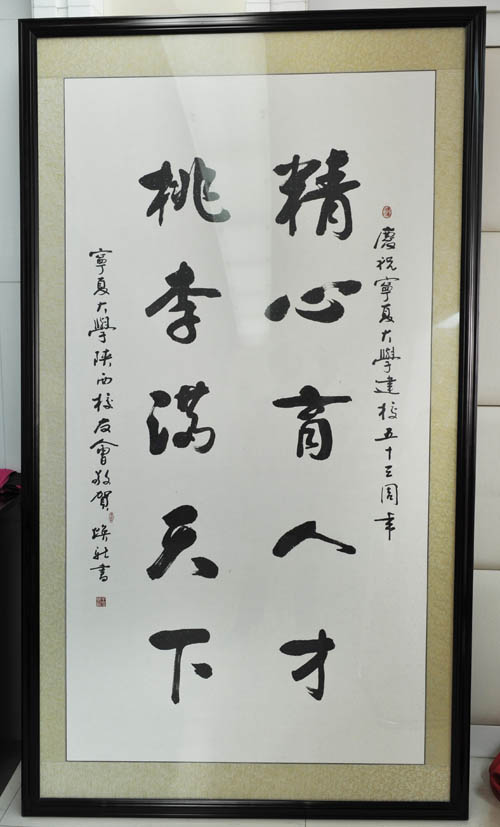 慶祝寧夏大學建校五十三周年
精心育人才
桃李满天下
寧夏大學陝西校友會敬賀
書